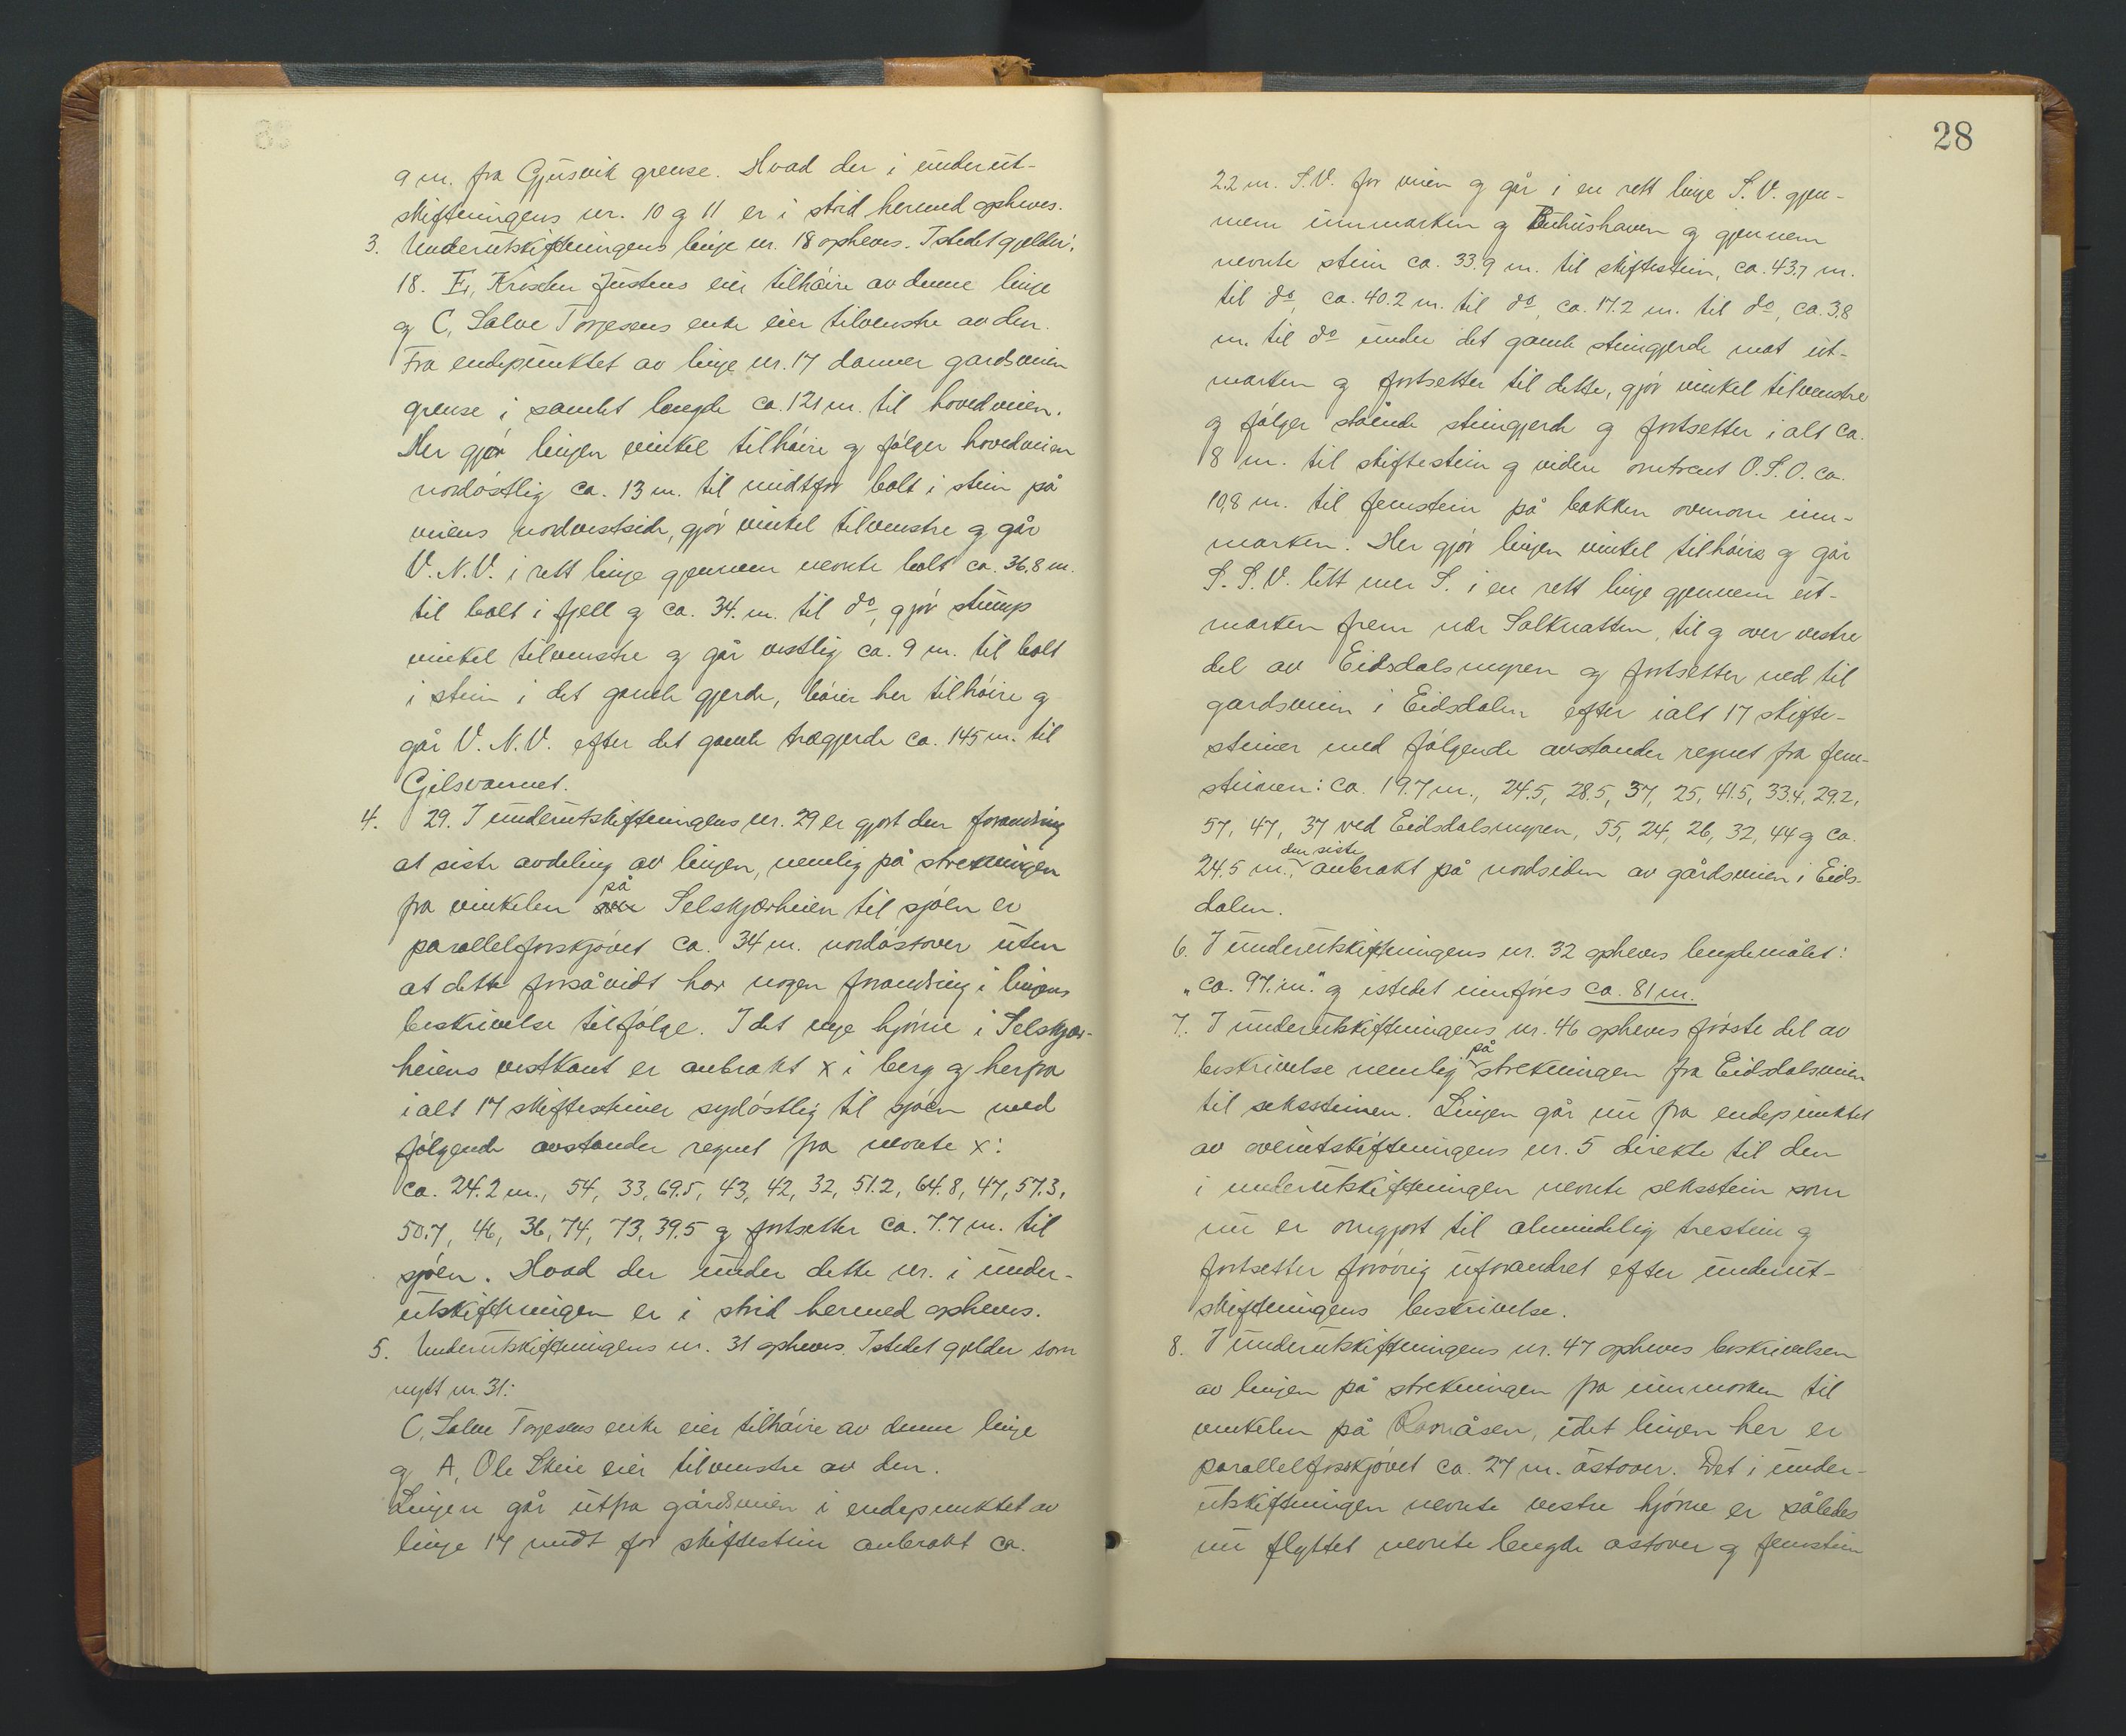 9 m. fra Gjusvik grense. Hvad der i underut-
skiftningens nr. 10 og 11 er i strid hermed opheves.
3. Underutskiftningens linje nr. 18 opheves. Istedet gjelder:
18. E, Kristen Justens eier tilhøire av denne linje
og C, Salve Torjesens enke eier tilvenstre av den.
Fra endepunktet av linje nr. 17 danner gardsveien
grense i samlet lengde ca. 121 m. til hovedveien.
Her gjør linjen vinkel tilhøire og følger hovedveien
nordøstlig ca. 13 m. til midtfor bolt i stein på
veiens nordvestside, gjør vinkel tilvenstre og går
V. N. V. i rett linje gjennem nevnte bolt ca. 36.8 m.
til bolt i fjell og ca. 34. m. til do, gjør stump
vinkel tilvenstre og går vestlig ca. 9 m. til bolt
i stein i det gamle gjerde, bøier her tilhøire og
går V. N. V. efter det gamle trægjerde ca. 145 m. til
Gilsvannet.
4. 29. I underutskiftningens nr. 29 er gjort den forandring
at siste avdeling av linjen, nemlig på strekningen
på
fra vinkelen Selskjærheien til sjøen er
parallelforskjøvet ca. 34 m. nordøstover uten
at dette forsåvidt har nogen forandring i linjens
beskrivelse tilfølge. I det nye hjørne i Selskjær-
heiens vestkant er anbrakt x i berg og herfra
ialt 17 skiftesteiner sydøstlig til sjøen med
følgende avstander regnet fra nevnte x:
ca. 24.2 m., 54, 33, 69.5, 43, 42, 32, 51.2, 64.8, 47, 57.3,
50.7, 46, 36, 74, 73, 39.5 og fortsetter ca. 7.7 m. til
sjøen. Hvad der under dette nr. i under-
utskiftningen er i strid hermed opheves.
5. Underutskiftningens nr. 31 opheves. Istedet gjelder som
nytt nr. 31:
C, Salve Torjesens enke eier tilhøire av denne linje
og A, Ole Skeie eier tilvenstre av den.
Linjen går utfra gårdsveien i endepunktet av
linje 17 midt for skiftestein anbrakt ca.
28
2.2 m. S.V. for veien og går i en rett linje S.V. gjen-
nem innmarken og Buhushaven og gjennem
nevnte stein ca. 33.9 m. til skiftestein, ca. 43.7 m.
til do, ca. 40.2 m. til do, ca. 17.2 m. til do, ca. 3.8
m. til do under det gamle steingjerde mot ut-
marken og fortsetter til dette, gjør vinkel tilvenstre
og følger stående steingjerde og fortsetter i alt ca.
8 m. til skiftestein og videre omtrent O.S.O. ca.
10,8 m. til femstein på bakken ovenom inn-
marken. Her gjør linjen vinkel tilhøire og går
S. S. V. litt mer S. i en rett linje gjennem ut-
marken frem nær Salknatten, til og over vestre
del av Eidsdalsmyren og fortsetter ned til
gardsveien i Eidsdalen efter ialt 17 skifte-
steiner med følgende avstander regnet fra fem-
steinen: ca. 19.7 m., 24.5, 28.5, 37, 25, 41.5, 33.4, 29.2,
57, 47, 37 ved Eidsdalsmyren, 55, 24, 26, 32, 44 og ca.
den siste
24.5 m., anbrakt på nordsiden av gårdsveien i Eids-
dalen.
6. I underutskiftningens nr. 32 opheves lengdemålet:
"ca. 97. m." og istedet innføres ca. 81 m.
7. I underutskiftningens nr. 46 opheves første del av
på
beskrivelse nemlig strekningen fra Eidsdalsveien
til seksteinen. Linjen går nu fra endepunktet
av overutskiftningens nr. 5 direkte til den
i underutskiftningen nevnte sekstein som
nu er omgjort til almindelig trestein og
fortsetter forøvrig uforandret efter underut-
skiftningens beskrivelse.
8. I underutskiftningens nr. 47 opheves beskrivelsen
av linjen på strekningen fra innmarken til
vinkelen på Ramåsen, idet linjen her er
parallelforskjøvet ca. 27 m. østover. Det i under-
utskiftningen nevnte vestre hjørne er således
nu flyttet nevnte lengde østover og femstein